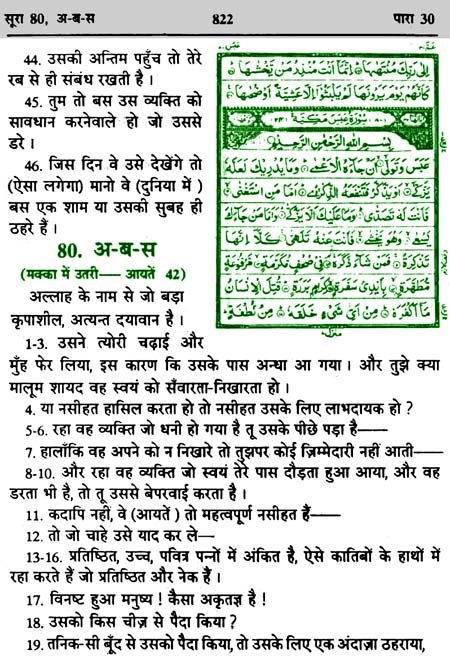 सूरा 80, अ-ब-स 822 पारा 30
44. उसकी अन्तिम पहुँच तो तेरे
रब से ही संबंध रखती है ।
45. तुम तो बस उस व्यक्ति को
सावधान करनेवाले हो जो उससे
डरे ।
46. जिस दिन वे उसे देखेंगे तो
(ऐसा लगेगा) मानो वे (दुनिया में )
बस एक शाम या उसकी सुबह ही
ठहरे हैं ।
80. अ-ब-स
(मक्का में उतरी— आयतें 42)
अल्लाह के नाम से जो बड़ा
कृपाशील, अत्यन्त दयावान है ।
إِلَىٰ رَبِّكَ مُنتَهَاهَا إِنَّمَا أَنتَ مُنذِرُ مَن يَخْشَاهَا
كَأَنَّهُمْ يَوْمَ يَرَوْنَهَا لَمْ يَلْبَثُوا إِلَّا عَشِيَّةً أَوْ ضُحَاهَا
بِسْمِ اللَّهِ الرَّحْمَٰنِ الرَّحِيمِ
عَبَسَ وَتَوَلَّىٰ أَن جَاءَهُ الْأَعْمَىٰ وَمَا يُدْرِيكَ لَعَلَّهُ
يَزَّكَّىٰ أَوْ يَذَّكَّرُ فَتَنفَعَهُ الذِّكْرَىٰ أَمَّا مَنِ اسْتَغْنَىٰ
فَأَنتَ لَهُ تَصَدَّىٰ وَمَا عَلَيْكَ أَلَّا يَزَّكَّىٰ وَأَمَّا مَن جَاءَكَ
يَسْعَىٰ وَهُوَ يَخْشَىٰ فَأَنتَ عَنْهُ تَلَهَّىٰ كَلَّا إِنَّهَا
تَذْكِرَةٌ فَمَن شَاءَ ذَكَرَهُ فِي صُحُفٍ مُّكَرَّمَةٍ مَّرْفُوعَةٍ
مُّطَهَّرَةٍ بِأَيْدِي سَفَرَةٍ كِرَامٍ بَرَرَةٍ قُتِلَ الْإِنسَانُ
مَا أَكْفَرَهُ مِنْ أَيِّ شَيْءٍ خَلَقَهُ مِن نُّطْفَةٍ
1-3. उसने त्योरी चढ़ाई और
मुँह फेर लिया, इस कारण कि उसके पास अन्धा आ गया । और तुझे क्या
मालूम शायद वह स्वयं को सँवारता-निखारता हो ।
4. या नसीहत हासिल करता हो तो नसीहत उसके लिए लाभदायक हो ?
5-6. रहा वह व्यक्ति जो धनी हो गया है तू उसके पीछे पड़ा है——
7. हालाँकि वह अपने को न निखारे तो तुझपर कोई ज़िम्मेदारी नहीं आती——
8-10. और रहा वह व्यक्ति जो स्वयं तेरे पास दौड़ता हुआ आया, और वह
डरता भी है, तो तू उससे बेपरवाई करता है ।
11. कदापि नहीं, वे (आयतें ) तो महत्वपूर्ण नसीहत हैं——
12. तो जो चाहे उसे याद कर ले—
13-16. प्रतिष्ठित, उच्च, पवित्र पन्नों में अंकित है, ऐसे कातिबों के हाथों में
रहा करते हैं जो प्रतिष्ठित और नेक हैं ।
17. विनष्ट हुआ मनुष्य ! कैसा अकृतज्ञ है !
18. उसको किस चीज़ से पैदा किया ?
19. तनिक-सी बूँद से उसको पैदा किया, तो उसके लिए एक अंदाज़ा ठहराया,